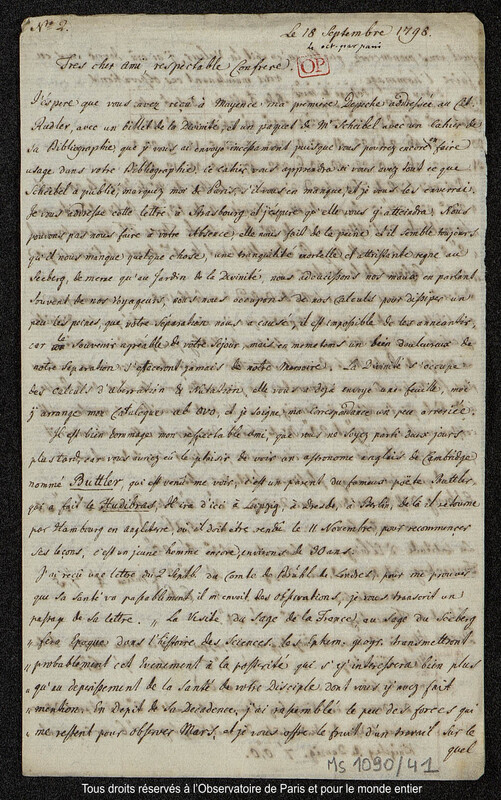 N.º 2.
Le 18 Septembre 1798.
Le oct. par paris
Tres cher Ami, respectable Confrere. OP
J'éspere que vous avez reçu à Mayence ma premiere Depeche adressée au Ct.
Rudler, avec un billet de la Divinité, et un paquet de Mr Scheibel avec un Cahier de
Sa Bibliographie, que j'y vous ai envoyé incessament puisque vous pouvez encore faire
usage dans votre Bibliographie. Ce cahier vous apprendra si vous avez tout ce que
Scheibel a publié; marquez moi de Paris, s'il vous en manque, et je vous les enverrai.
Je vous adresse cette lettre à Strasbourg et j'espere qu'elle vous y atteindra. Nous
pouvons pas nous faire à votre Absence, elle nous fait de la peine, et il semble toujours
qu'il nous manque quelque chose, une tranquilité mortelle et attristante regne au
Seeberg, de meme qu'au Jardin de la Divinité, nous adoucissons nos maux, en parlant
souvent de nos Voyageurs, nous nous occupons de nos Calculs pour dissiper un
peu les peines, que votre Séparation nous a causée; il est impossible de les aneantir,
car le souvenir agreable de votre Séjour, mais en meme tems un bien douloureux de
notre separation s'effaceront jamais de notre Memoire. La Divinité s'occupe
des Calculs d'Aberration & Nutation, elle vous a déjà envoyé une feuille, moi
j'y arrange mon Catalogue ab ovo, et je soigne ma Correspondance un peu arrierée.
Il est bien dommage mon respectable Ami, que vous ne soyez parti deux jours
plus tard, car vous auriez eû le plaisir de voir un astronome anglais de Cambridge
nommé Buttler, qui est venû me voir, c'est un parent du fameux poëte Buttler
qui a fait le Hudibras. Il ira d'ici à Leipzig, à Dresde, à Berlin, de là il retourne
par Hambourg en angleterre où il doit être rendû le 11 Novembre, pour recommencer
ses leçons, c'est un jeune homme encore, environs de 30 ans.
J'ai reçu une lettre du 2 Septb. du Comte de Brühl de Londres, pour me prouver
que sa santé va passablement il m'envoit des Observations, je vous transcrit un
passage de sa lettre. „ La Visite du Sage de la France, au Sage du Seeberg
„ fera Epoque dans l'histoire des Sciences. les Ephem. geogr. transmettront
„ probablement cet Evenement à la posterité qui s'y intressera bien plus
„ qu'au deperissement de la Santé de votre Disciple dont vous y avez fait
„ mention. En Depit de sa Decadence, j'ai rassemblé le peu des forces qui
„ me restent pour observer Mars, et je vous offre le fruit d'un travail sur le
quel
Ms 1090/41
Tous droits réservés à l'Observatoire de Paris et pour le monde entier